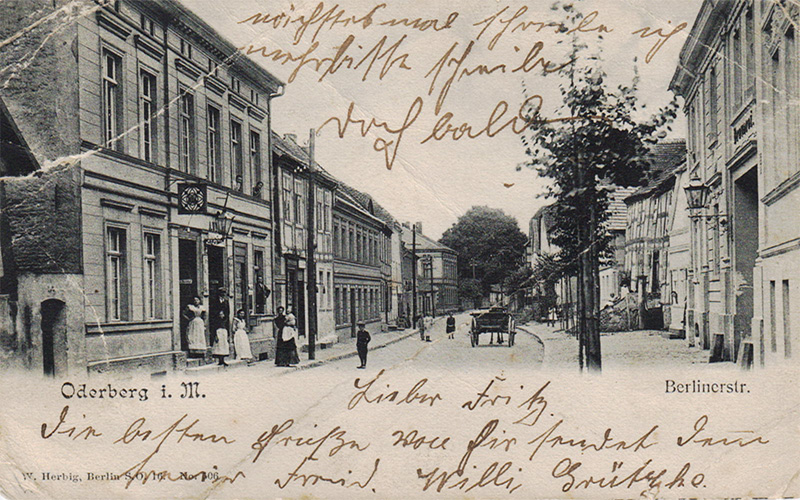 nächstes mal schreibe ich
mehr bitte schreib
doch bald
Oderberg i. M.
Berlinerstr.
Lieber Fritz.
Die besten Grüße von hir sendet Dein
Freund. Willi Grützke.
W. Herbig, Berlin S.O. 16. No. 506